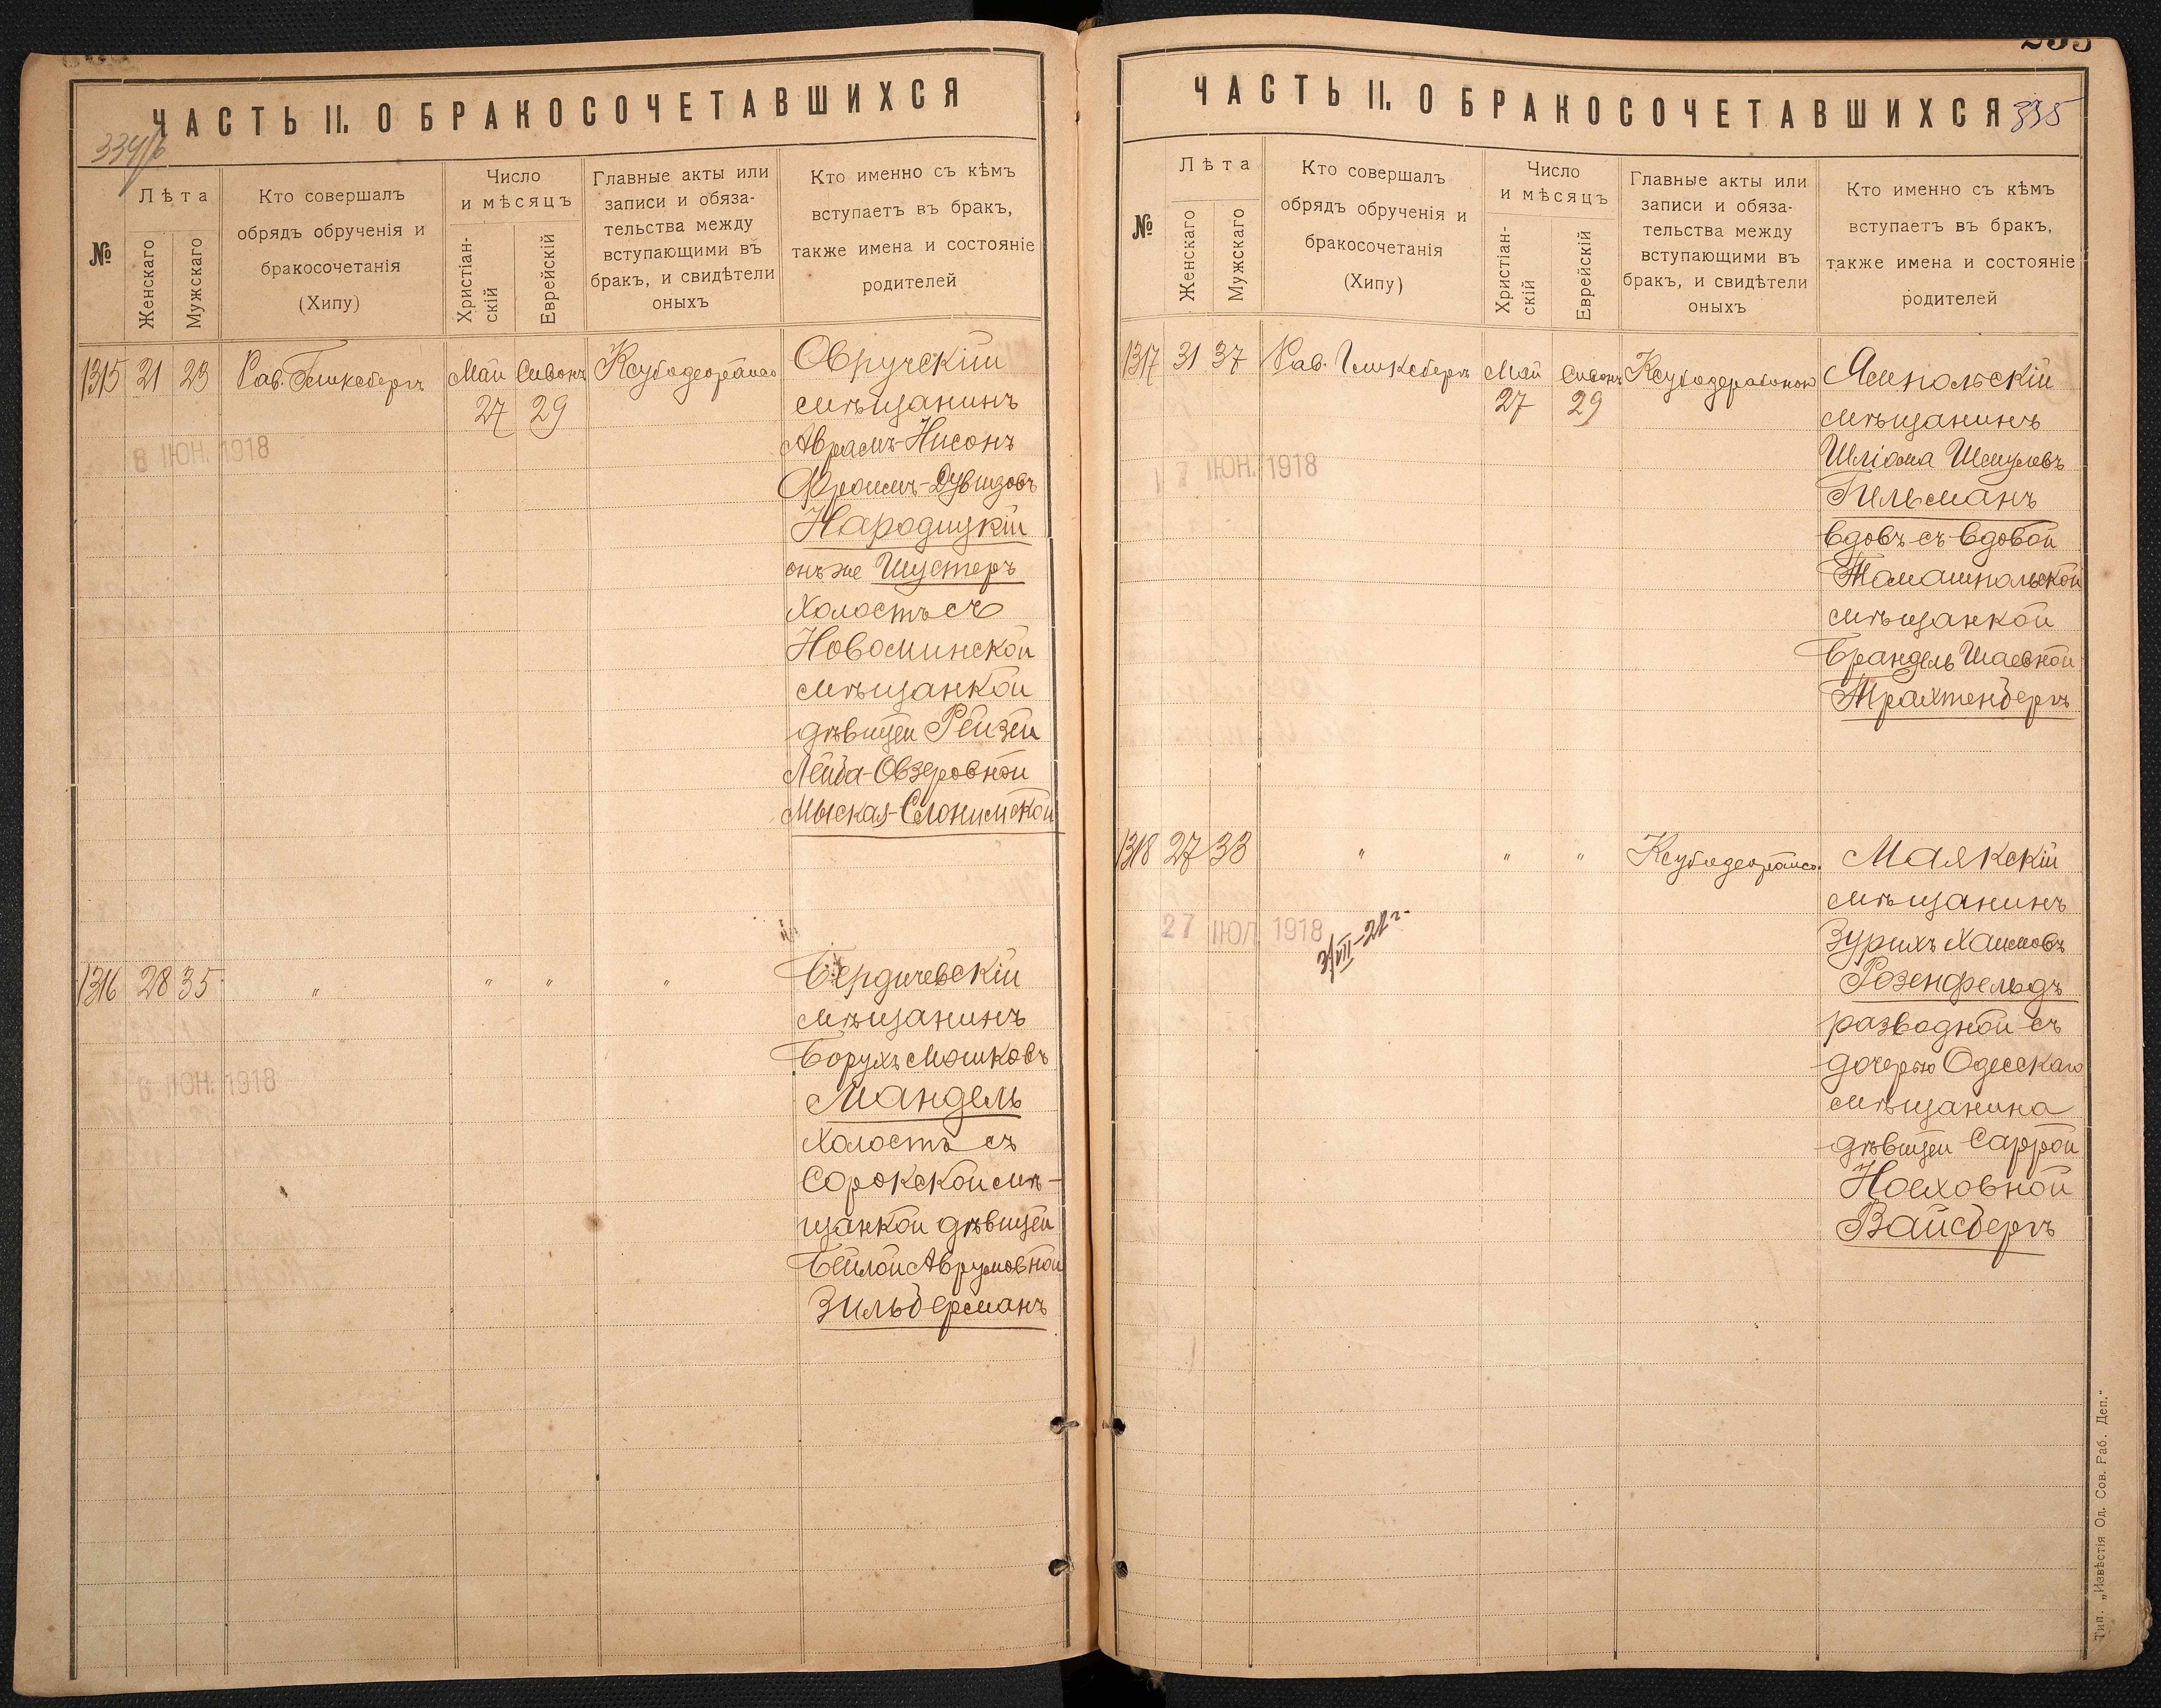 ЧАСТЬ II. О БРАКОСОЧЕТАВШИХСЯ
№
Лѣта
Женскаго
Мужскаго
Кто совершалъ
обрядъ обрученія и
бракосочетанія
(Хипу)
Число
и мѣсяцъ
Христіан-
скій
Еврейскій
Главные акты или
записи и обяза-
тельства между
вступающими въ
бракъ, и свидѣтели
оныхъ
Кто именно съ кѣмъ
вступаетъ въ бракъ,
также имена и состояніе
родителей
1315 21 23 Рав. Гинксбергъ Май Сивонъ
27 29
Овручскій
мѣщанинъ
Аврамъ-Нисонъ
Фроимъ-Дувидовъ
Народицкій
онъ же Шустеръ
холостъ съ
Новоминской
мѣщанкой
дѣвицей Рейзей
Лейба-Овзеровной
Мыская-Слонимской
8 ІЮН. 1918
1316 28 35 " " " "
Бердичевскій
мѣщанинъ
Борухъ Мошковъ
Мандель
холостъ съ
Сорокской мѣ-
щанкой дѣвицей
Бейлой Аврумовной
Зильберманъ
6 ІЮН. 1918
ЧАСТЬ II. О БРАКОСОЧЕТАВШИХСЯ
335
№
Лѣта
Женскаго
Мужскаго
Кто совершалъ
обрядъ обрученія и
бракосочетанія
(Хипу)
Число
и мѣсяцъ
Христіан-
скій
Еврейскій
Главные акты или
записи и обяза-
тельства между
вступающими въ
бракъ, и свидѣтели
оныхъ
Кто именно съ кѣмъ
вступаетъ въ бракъ,
также имена и состояніе
родителей
1317 31 37 Рав. Гинксбергъ Май Сивонъ
27 29
Ямпольскій
мѣщанинъ
Шліома Шмулевъ
Гильманъ
вдовъ съ вдовой
Томашпольской
мѣщанкой
Брандель Шаевной
Трахтенбергъ
17 ІЮН. 1918
1318 27 33 " " "
Маякскій
мѣщанинъ
Зурихъ Хаимовъ
Розенфельдъ
разводной съ
дочерью Одесскаго
мѣщанина
дѣвицей Саррой
Ноеховной
Вайсбергъ
27 ІЮЛ 1918
3/VIII-21г.
Тип. „Извѣстія Од. Сов. Раб. Деп."